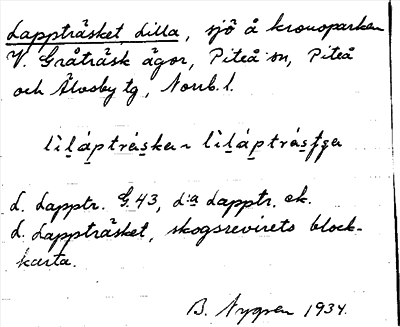 Lappträsket Lilla, sjö å kronoparken
V. Gråträsk ägor, Piteå sn, Piteå
och Älvsby tg, Norrb. l.
lìlápträska ~ lìláptrás
L. Lapptr. G. 43, L:a Lapptr. ek.
L. Lappträsket, skogsrevirets block-
karta.
B. Nygren 1934.